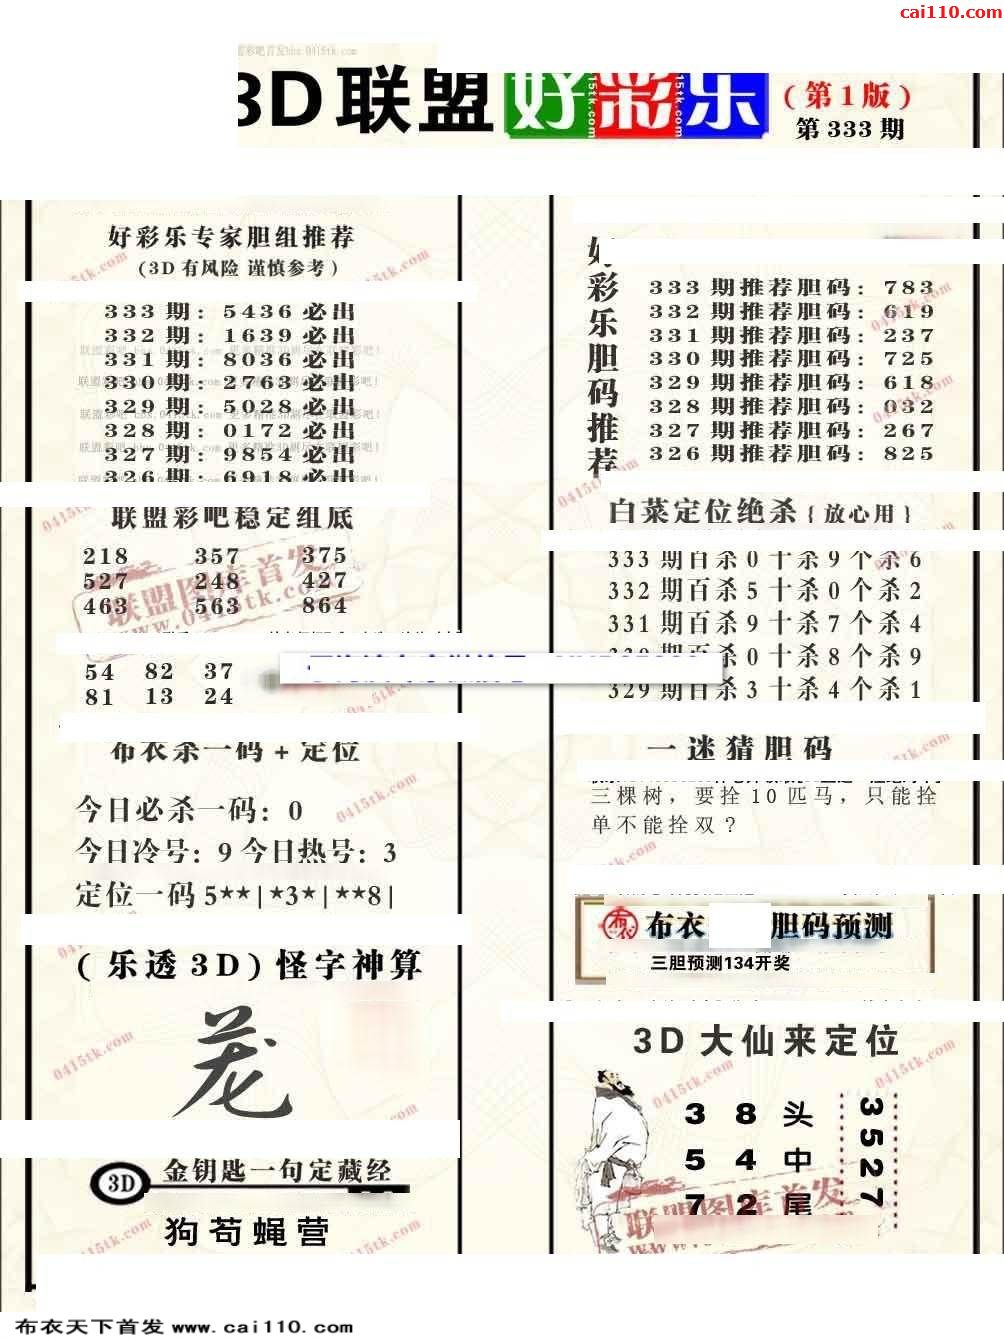 cai110.com
3D联盟好彩乐
(第1版)
第333期
好彩乐专家胆组推荐
(3D有风险 谨慎参考)
333期:5436必出
332期:1639必出
331期:8036必出
330期:2763必出
329期:5028必出
328期:0172必出
327期:9854必出
326期:6918必出
联盟彩吧稳定组底
218 357 375
527 248 427
463 563 864
54 82 37
81 13 24
布衣杀一码+定位
今日必杀一码: 0
今日冷号: 9 今日热号: 3
定位一码 5**|*3*|**8|
(乐透3D)怪字神算
3D 金钥匙一句定藏经
狗苟蝇营
好彩乐胆码推荐
333期推荐胆码: 783
332期推荐胆码: 619
331期推荐胆码: 237
330期推荐胆码: 725
329期推荐胆码: 618
328期推荐胆码: 032
327期推荐胆码: 267
326期推荐胆码: 825
白菜定位绝杀{放心用}
333期百杀0十杀9个杀6
332期百杀5十杀0个杀2
331期百杀9十杀7个杀4
330期百杀0十杀8个杀9
329期百杀3十杀4个杀1
一迷猜胆码
三棵树,要拴10匹马,只能拴
单不能拴双?
布衣 胆码预测
三胆预测134开奖
3D大仙来定位
3 8 头
5 4 中
7 2 尾
3527
联盟图库首发
www.0415tk.com
0415tk.com
布衣天下首发 www.cai110.com